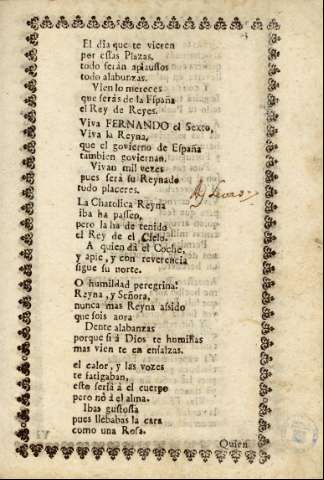 El dia que te vieren
por essas Plazas,
todo serán aplausos
todo alabanzas.
Vien lo mereces
que serás de la España
el Rey de Reyes.
Viva FERNANDO el Sexto,
Viva la Reyna,
que el govierno de España
tambien goviernan.
Vivan mil vezes
pues será su Reynado
tudo placeres.
La Chatolica Reyna
iba ha passeo,
pero la ha de tenido
el Rey de el Cielo.
A quien dá el Coche
y apie, y con reverencia
sigue su norte.
O humildad peregrina!
Reyna, y Señora,
nunca mas Reyna has sido
que sois aora
Dente alabanzas
porque si á Dios te homillas
mas vien te ensalzas.
el calor, y las vozes
te fatigaban,
esto seria á el cuerpo
pero nó á el alma.
Ibas gustossa
pues llebabas la cara
como una Rosa.
Quien